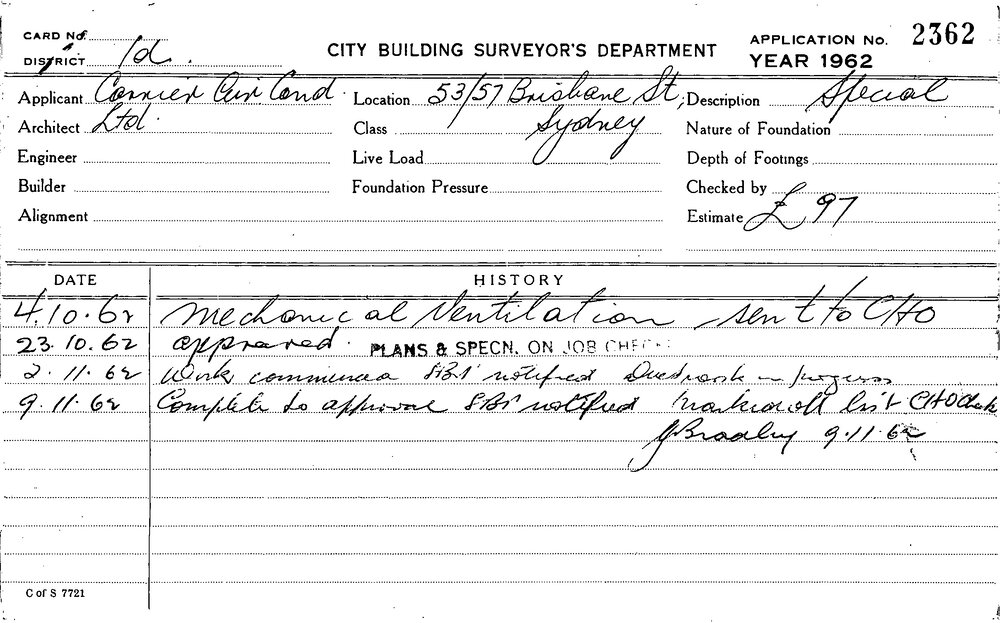 CARD No.
DISTRICT 1d.
CITY BUILDING SURVEYOR'S DEPARTMENT
APPLICATION No. 2362
YEAR 1962
Applicant Carrier Air Cond. Location 53/57 Brisbane St, Description Special
Architect Ltd. Class Sydney Nature of Foundation
Engineer Live Load Depth of Footings
Builder Foundation Pressure Checked by
Alignment Estimate £97
DATE HISTORY
4.10.62 Mechanical Ventilation sent to CHO
23.10.62 approved. PLANS & SPECN. ON JOB CHEC
2.11.62 Work notified in progress
9.11.62 Complete to approval notified Marked off list CHO
Bradley 9.11.62
C of S 7721